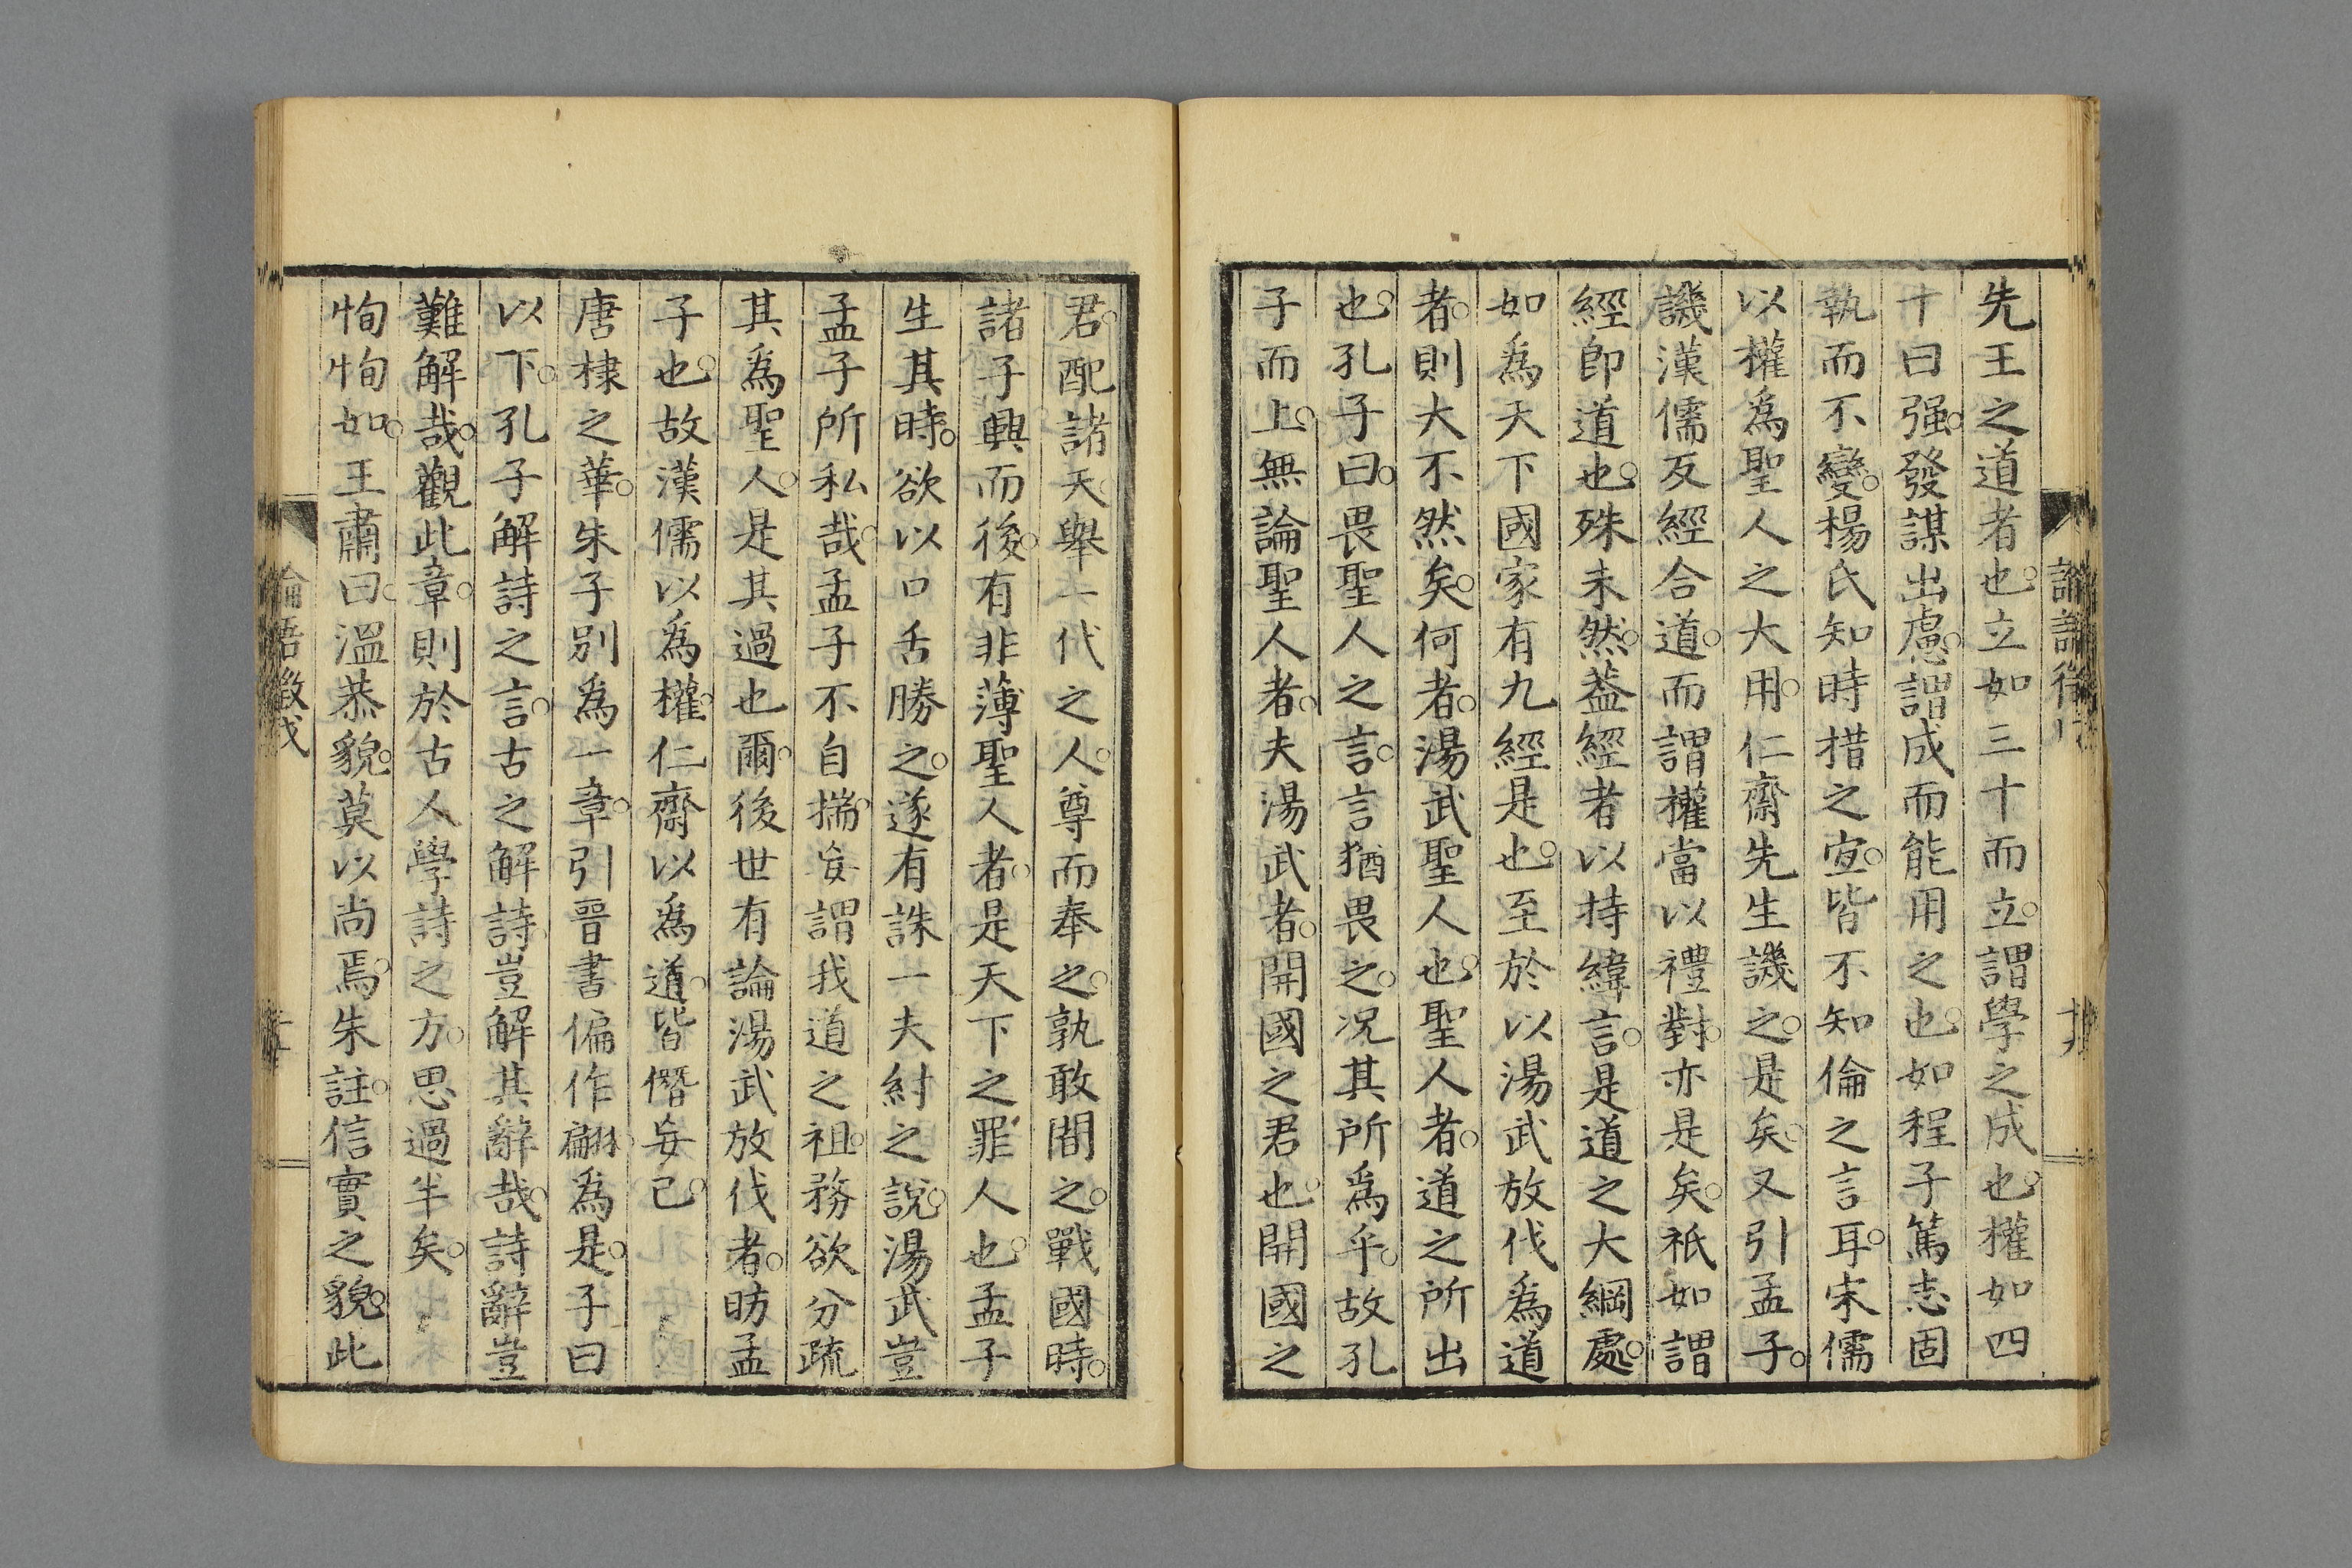 先王之道者也立如三十而立謂學之成也權如四
十曰强發謀出慮謂成而能用之也如程子篤志固
執而不變楊氏知時措之宜皆不知倫之言耳宋儒
以權爲聖人之大用仁齋先生譏之是矣又引孟子
譏漢儒反經合道而謂權當以禮對亦是矣祇如謂
經即道也殊未然葢經者以持緯言是道之大綱處
如爲天下國家有九經是也至於以湯武放伐爲道
者則大不然矣何者湯武聖人也聖人者道之所出
也孔子曰畏聖人之言言猶畏之况其所爲乎故孔
子而上無論聖人者夫湯武者開國之君也開國之
君配諸天舉一代之人尊而奉之孰敢間之戰國時
諸子興而後有非薄聖人者是天下之罪人也孟子
生其時欲以口舌勝之遂有誅一夫紂之說湯武豈
孟子所私哉孟子不自揣妄謂我道之祖務欲分疏
其爲聖人是其過也爾後世有論湯武放伐者昉孟
子也故漢儒以爲權仁齋以爲道皆僭妄已
唐棣之華朱子別爲一章引晉書偏作翩爲是子曰
以下孔子解詩之言古之解詩豈解其辭哉詩辭豈
難解哉觀此章則於古人學詩之方思過半矣
恂恂如王肅曰溫恭貌莫以尚焉朱註信實之貌此
論語徵戊